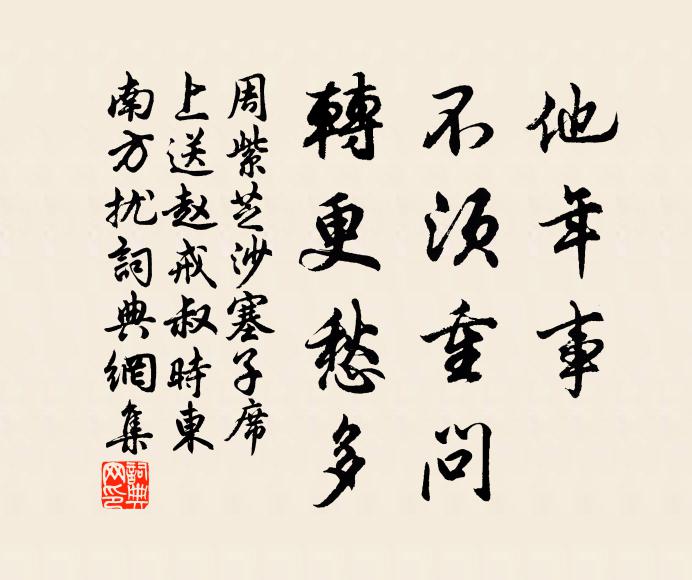 他年事
不須重問
轉更愁多
周紫芝沙塞子席
上送赵戒叔時東
南方扰詞典網集
詞典
网印